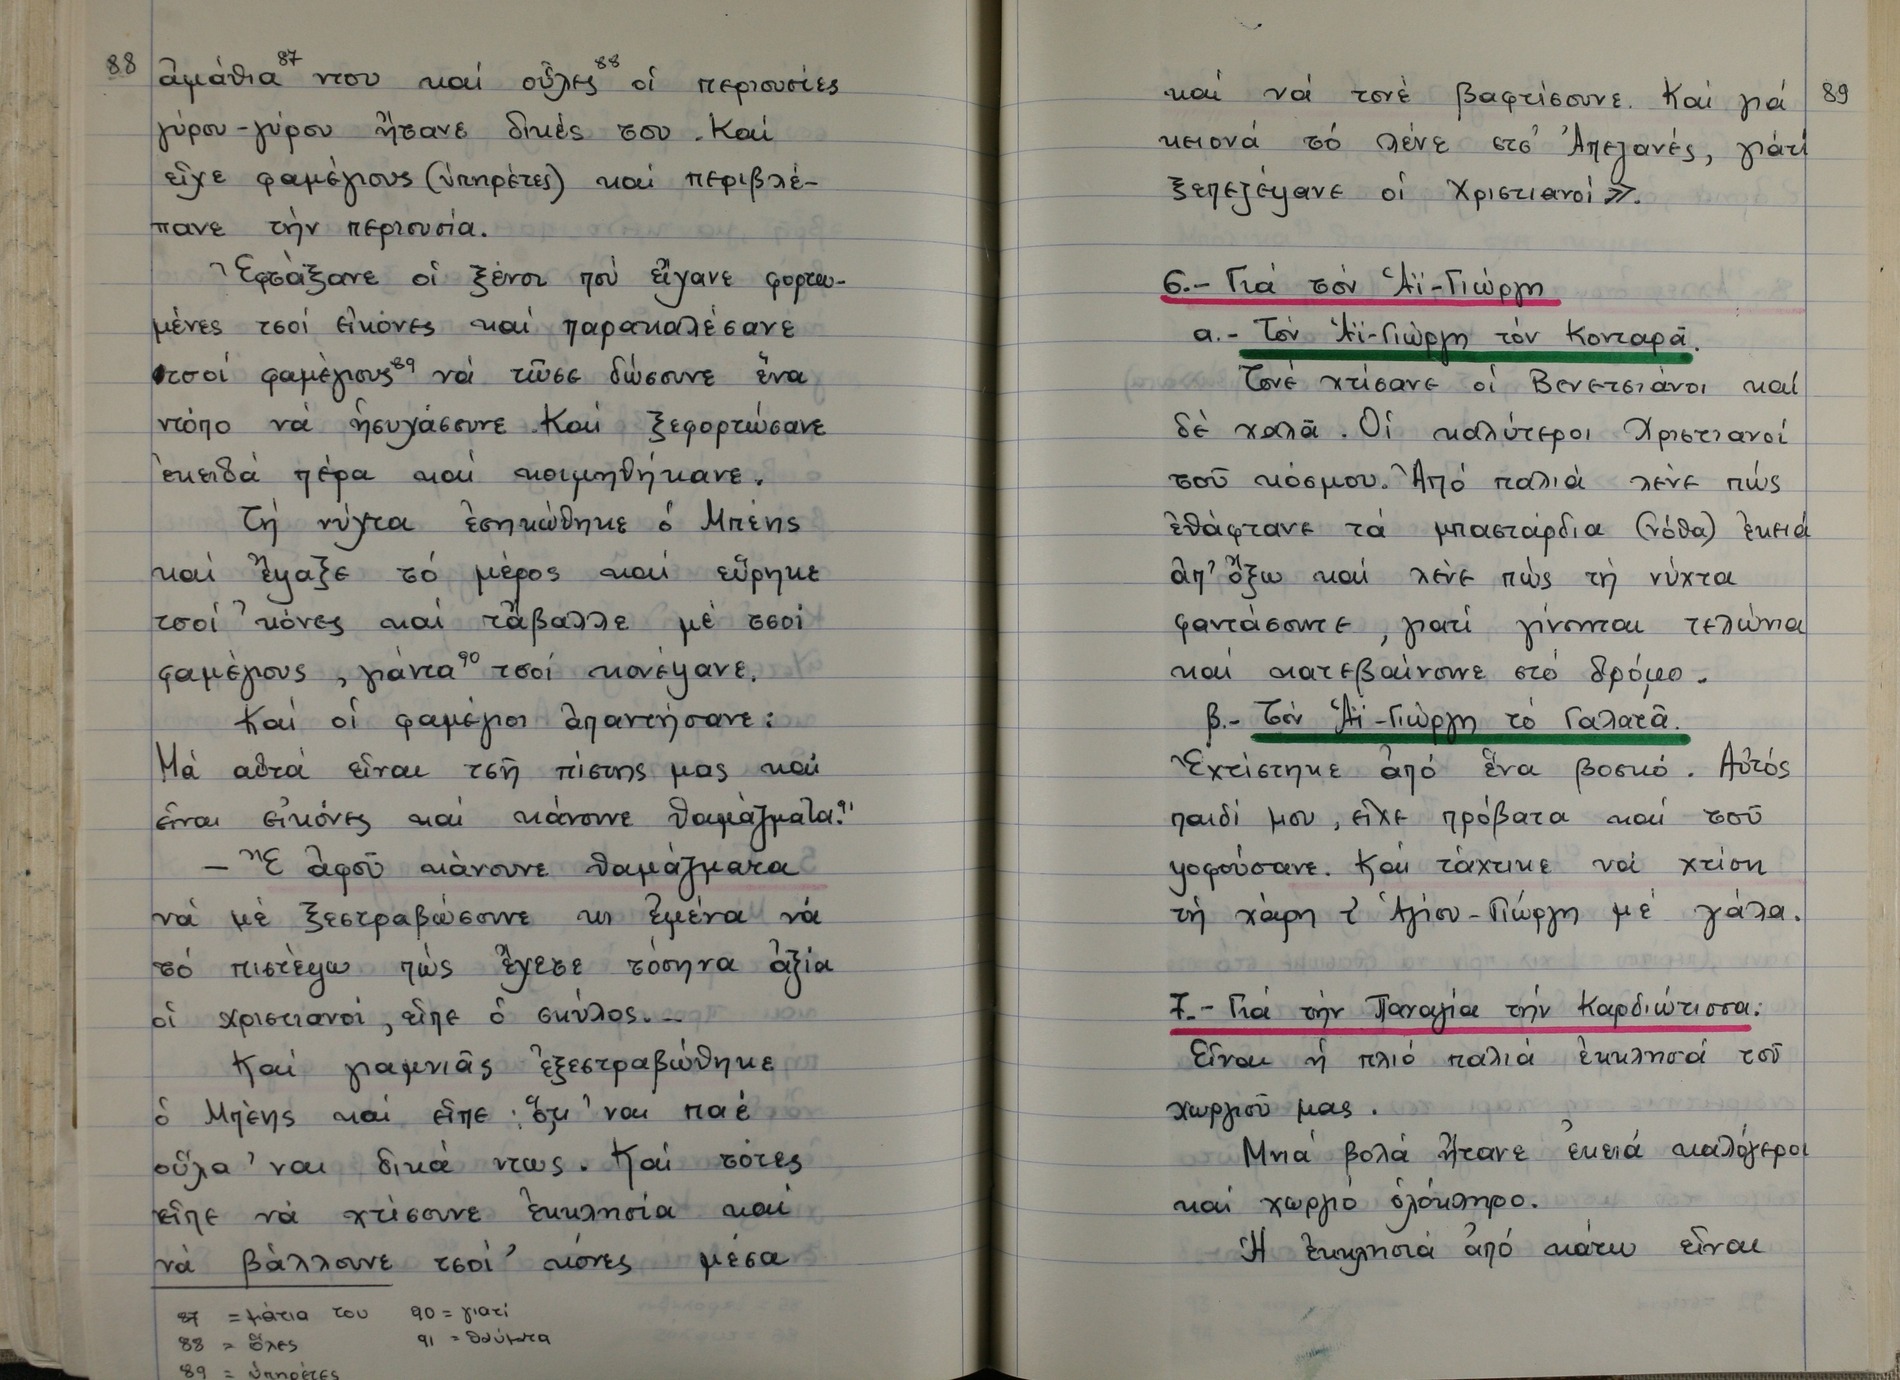 88
ἀμάθια⁸⁷ ντου καί οὖλες⁸⁸ οἱ περιουσίες
γύρου-γύρου ἤτανε δικές του. Καί
εἶχε φαμέγιους (ὑπηρέτες) καί περιβλέ-
πανε τήν περιουσία.
Ἐφτάξανε οἱ ξένοι πού εἴχανε φορτω-
μένες τσοί εἰκόνες καί παρακαλέσανε
τσοί φαμέγιους⁸⁹ νά τῶσε δώσουνε ἕνα
ντόπο νά ἡσυχάσουνε. Καί ξεφορτώσανε
ἐκειδά πέρα καί κοιμηθήκανε.
Τή νύχτα ἐσηκώθηκε ὁ Μπέης
καί ἔψαξε τό μέρος καί εὕρηκε
τσοί 'κόνες καί τἄβαλλε μέ τσοί
φαμέγιους, γιάντα⁹⁰ τσοί κονέψανε.
Καί οἱ φαμέγιοι ἀπαντήσανε:
Μά αὐτά εἶναι τσῆ πίστης μας καί
εἶναι εἰκόνες καί κάνουνε θαμάζματα.⁹¹
— Ἔ ἀφοῦ κάνουνε θαμάζματα
νά μέ ξεστραβώσουνε κι ἐμένα νά
τό πιστέψω πώς ἔχετε τόσηνα ἀξία
οἱ χριστιανοί, εἶπε ὁ σκύλος. —
Καί γιαμνιᾶς ἐξεστραβώθηκε
ὁ Μπέης καί εἶπε: ὅτι 'ναι παέ
οὗλα 'ναι δικά ντως. Καί τότες
εἶπε νά χτίσουνε ἐκκλησία καί
νά βάλλουνε τσοί 'κόνες μέσα
87 = μάτια του
88 = ὅλες
89 = ὑπηρέτες
90 = γιατί
91 = θαύματα
89
καί νά τονέ βαφτίσουνε. Καί γιά
κειονά τό λένε στσ' Ἀπεζανές, γιατί
ξεπεζέψανε οἱ Χριστιανοί».
6.- Γιά τόν Ἁϊ-Γιώργη
α.- Τόν Ἁϊ-Γιώργη τόν Κονταρᾶ.
Τονέ χτίσανε οἱ Βενετσιάνοι καί
δέ χαλᾶ. Οἱ καλύτεροι Χριστιανοί
τοῦ κόσμου. Ἀπό παλιά λένε πώς
ἐθάφτανε τά μπαστάρδια (νόθα) ἐκειά
ἀπ' ὄξω καί λένε πώς τή νύχτα
φαντάσουντε, γιατί γίνονται τελώνια
καί κατεβαίνουνε στό δρόμο.
β.- Τόν Ἁϊ-Γιώργη τό Γαλατᾶ.
Ἐχτίστηκε ἀπό ἕνα βοσκό. Αὐτός
παιδί μου, εἶχε πρόβατα καί τοῦ
ψοφούσανε. Καί τάχτικε νά χτίση
τή χάρη τ' Ἁγίου-Γιώργη μέ γάλα.
7.- Γιά τήν Παναγία τήν Καρδιώτισσα:
Εἶναι ἡ πλιό παλιά ἐκκλησά τοῦ
χωργιοῦ μας.
Μπιά βολά ἤτανε ἐκειά καλόγεροι
καί χωργιό ὁλόκληρο.
Ἡ ἐκκλησιά ἀπό κάτω εἶναι